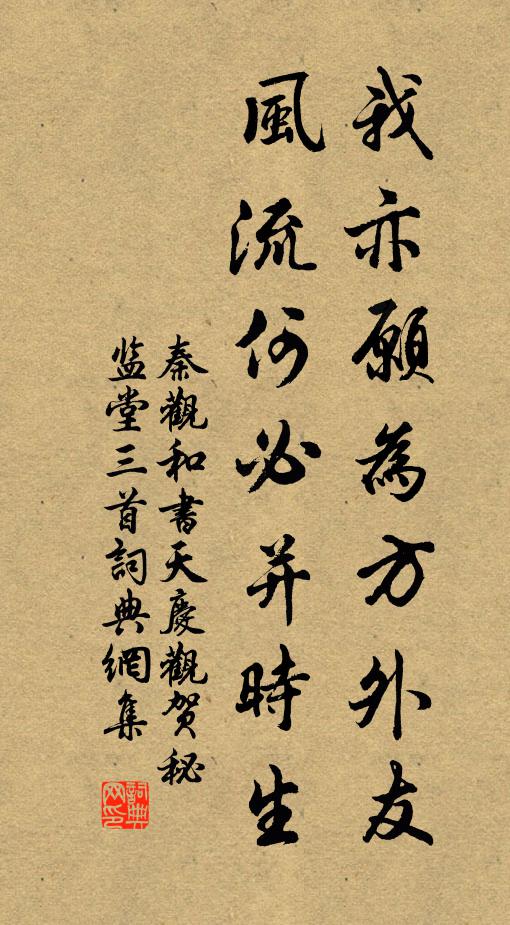 我亦願為方外友
風流何必并時生
秦觀和書天慶觀賀秘
监堂三首詞典網集
詞典
网印